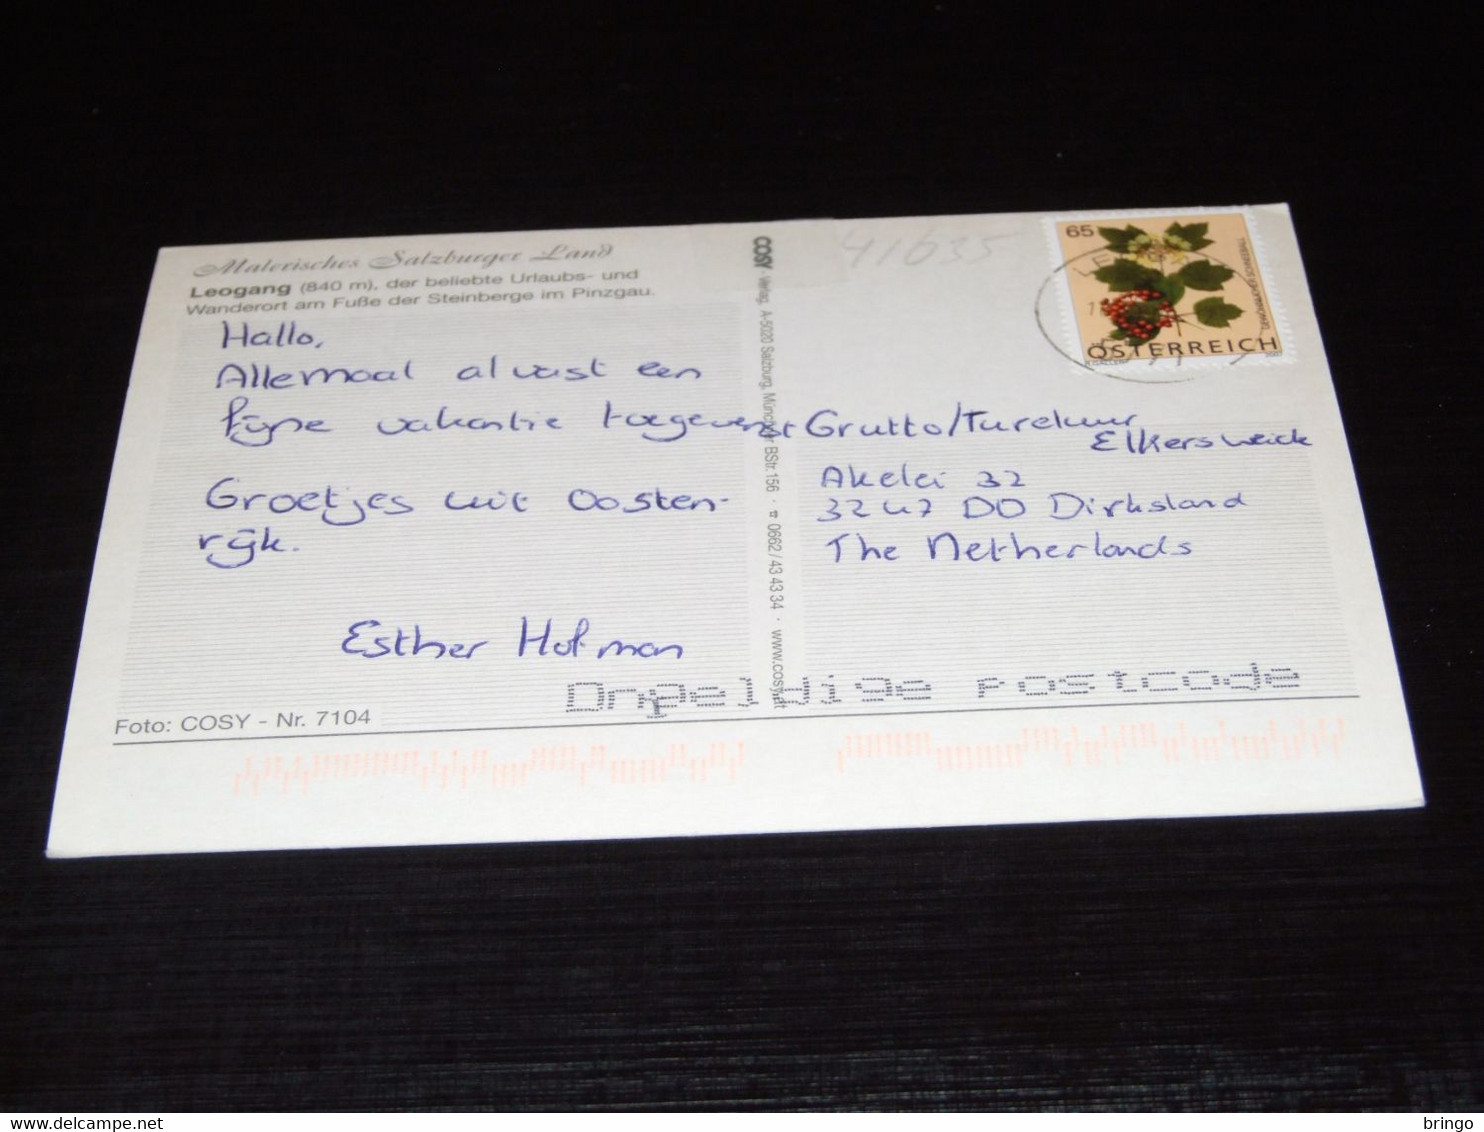 Malerisches Salzburger Land
Leogang (840 m), der beliebte Urlaubs- und
Wanderort am Fuße der Steinberge im Pinzgau.
Hallo,
Allemaal alvast een
fijne vakantie toegewenst
Groetjes uit Oosten-
rijk.
Esther Hofman
Foto: COSY - Nr. 7104
COSY - Verlag, A-5020 Salzburg, Münchner BStr. 156 · ☎ 0662/43 43 34 · www.cosy.at
41635
65
ÖSTERREICH
2007
Grutto/Tureluur
Elkersweide
Akelei 32
3247 DD Dirksland
The Netherlands
Ongeldige postcode
delcampe.net
bringo